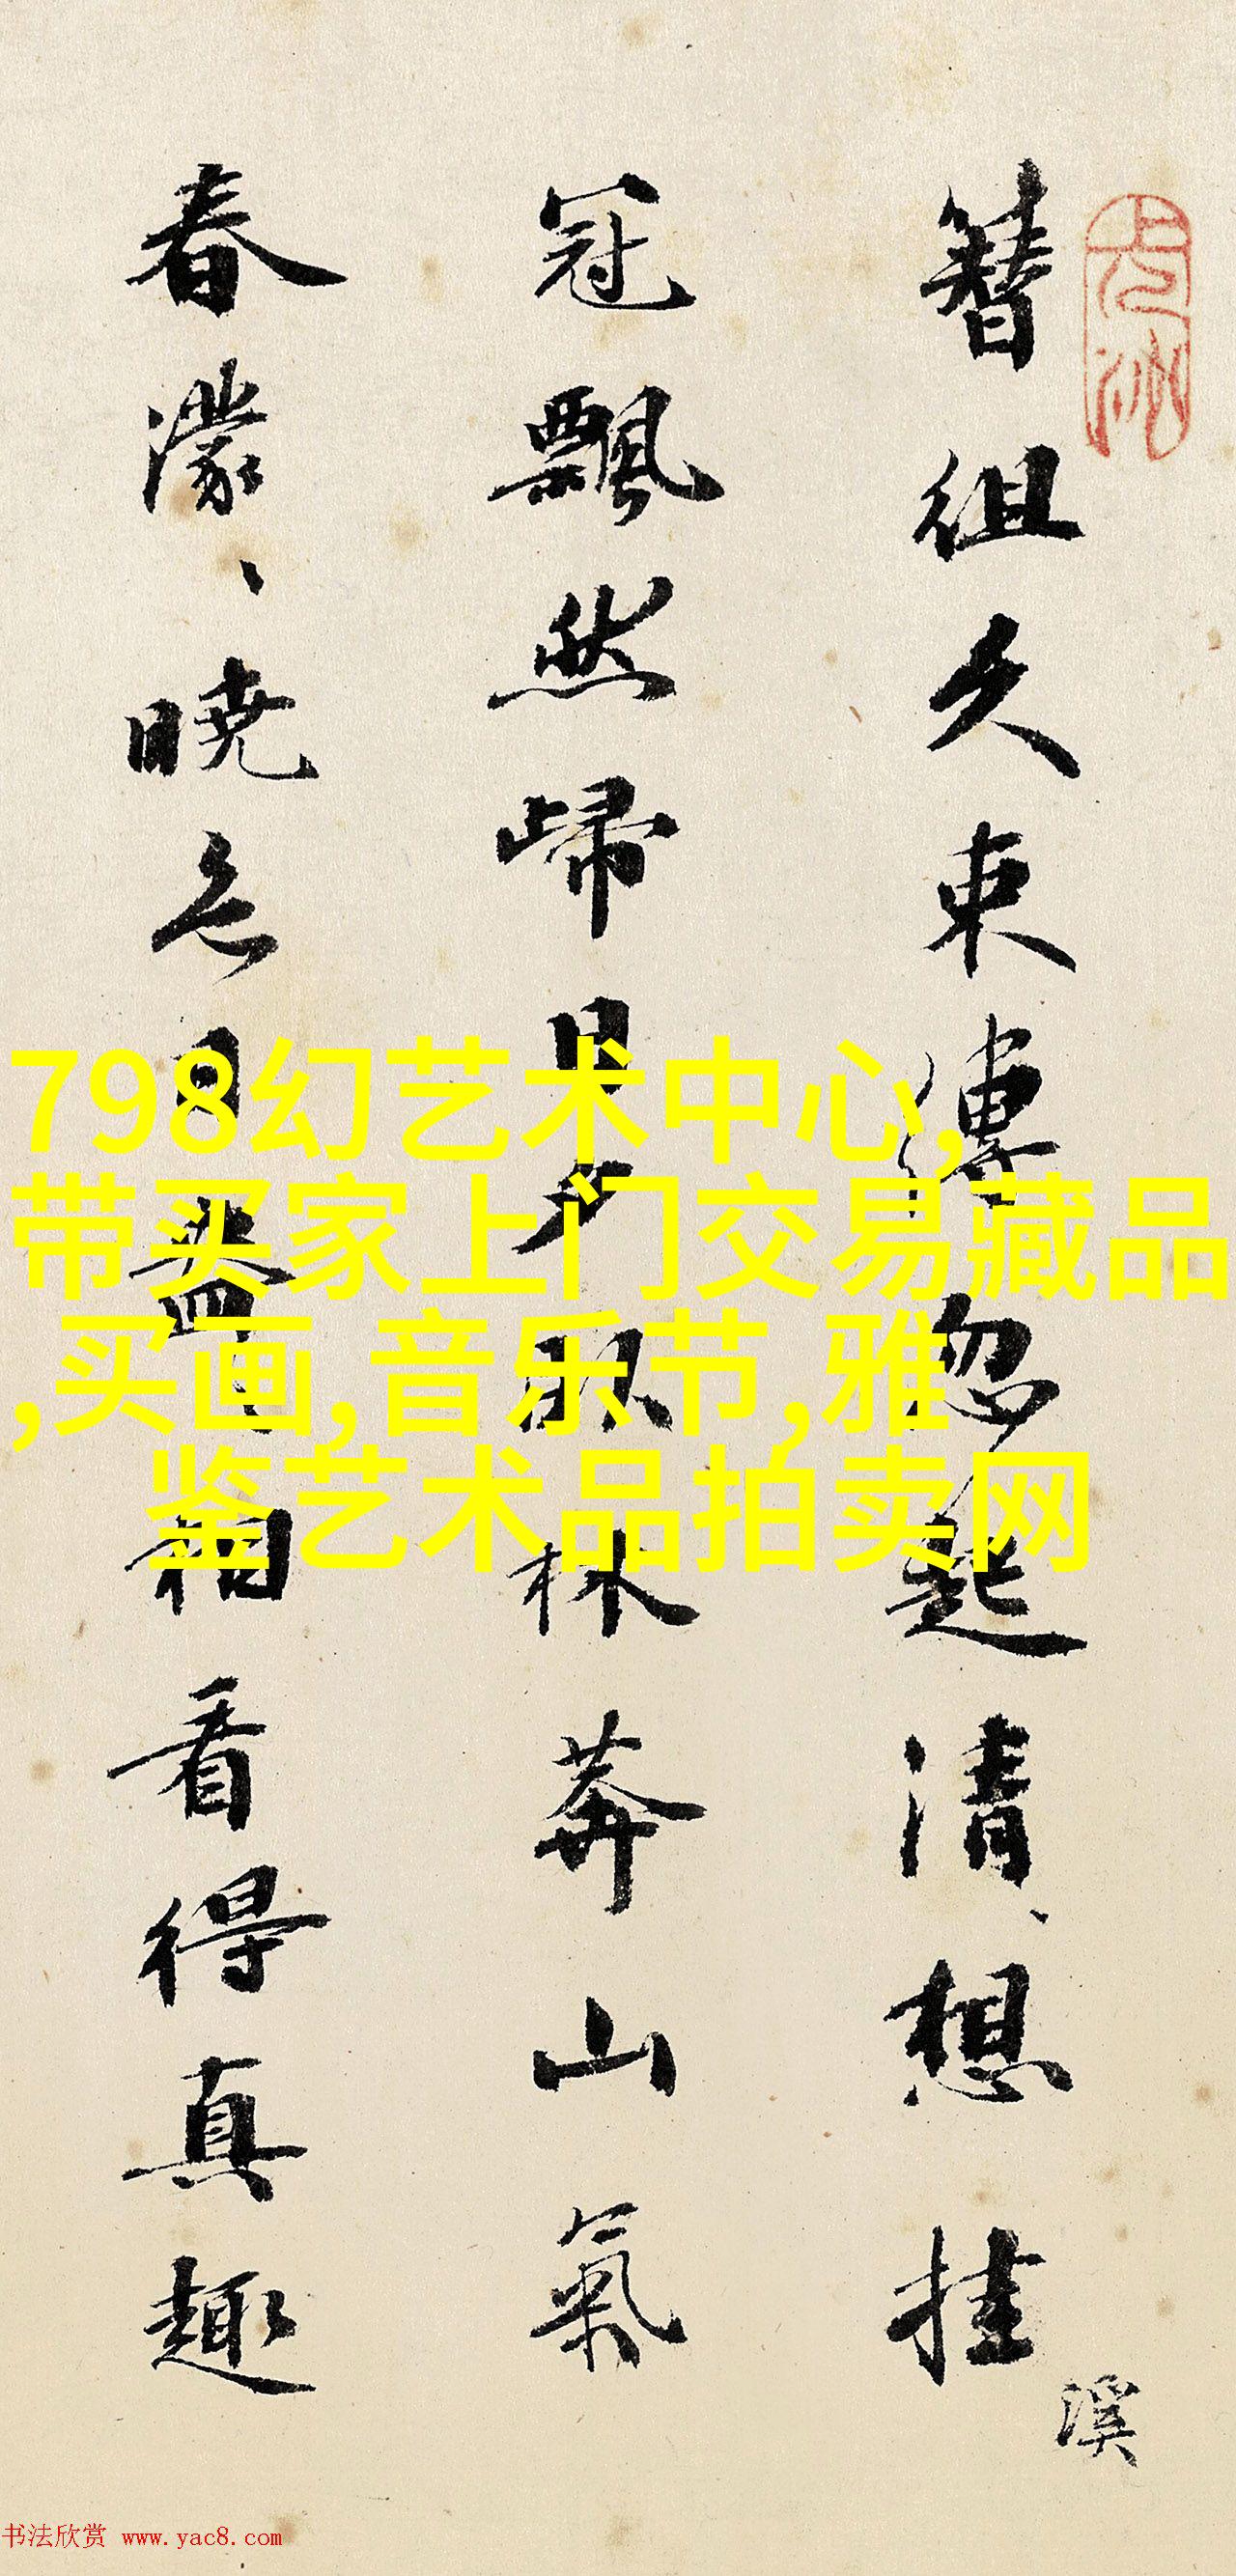 簪組久束縛忽起清、想挂
冠飄然歸日夕臥林莽山氣
春濛、曉色日盎、相看得真趣
溪
798幻艺术中心,
带买家上门交易藏品
,买画,音乐节,雅
鉴艺术品拍卖网
书法欣赏 www.yac8.com